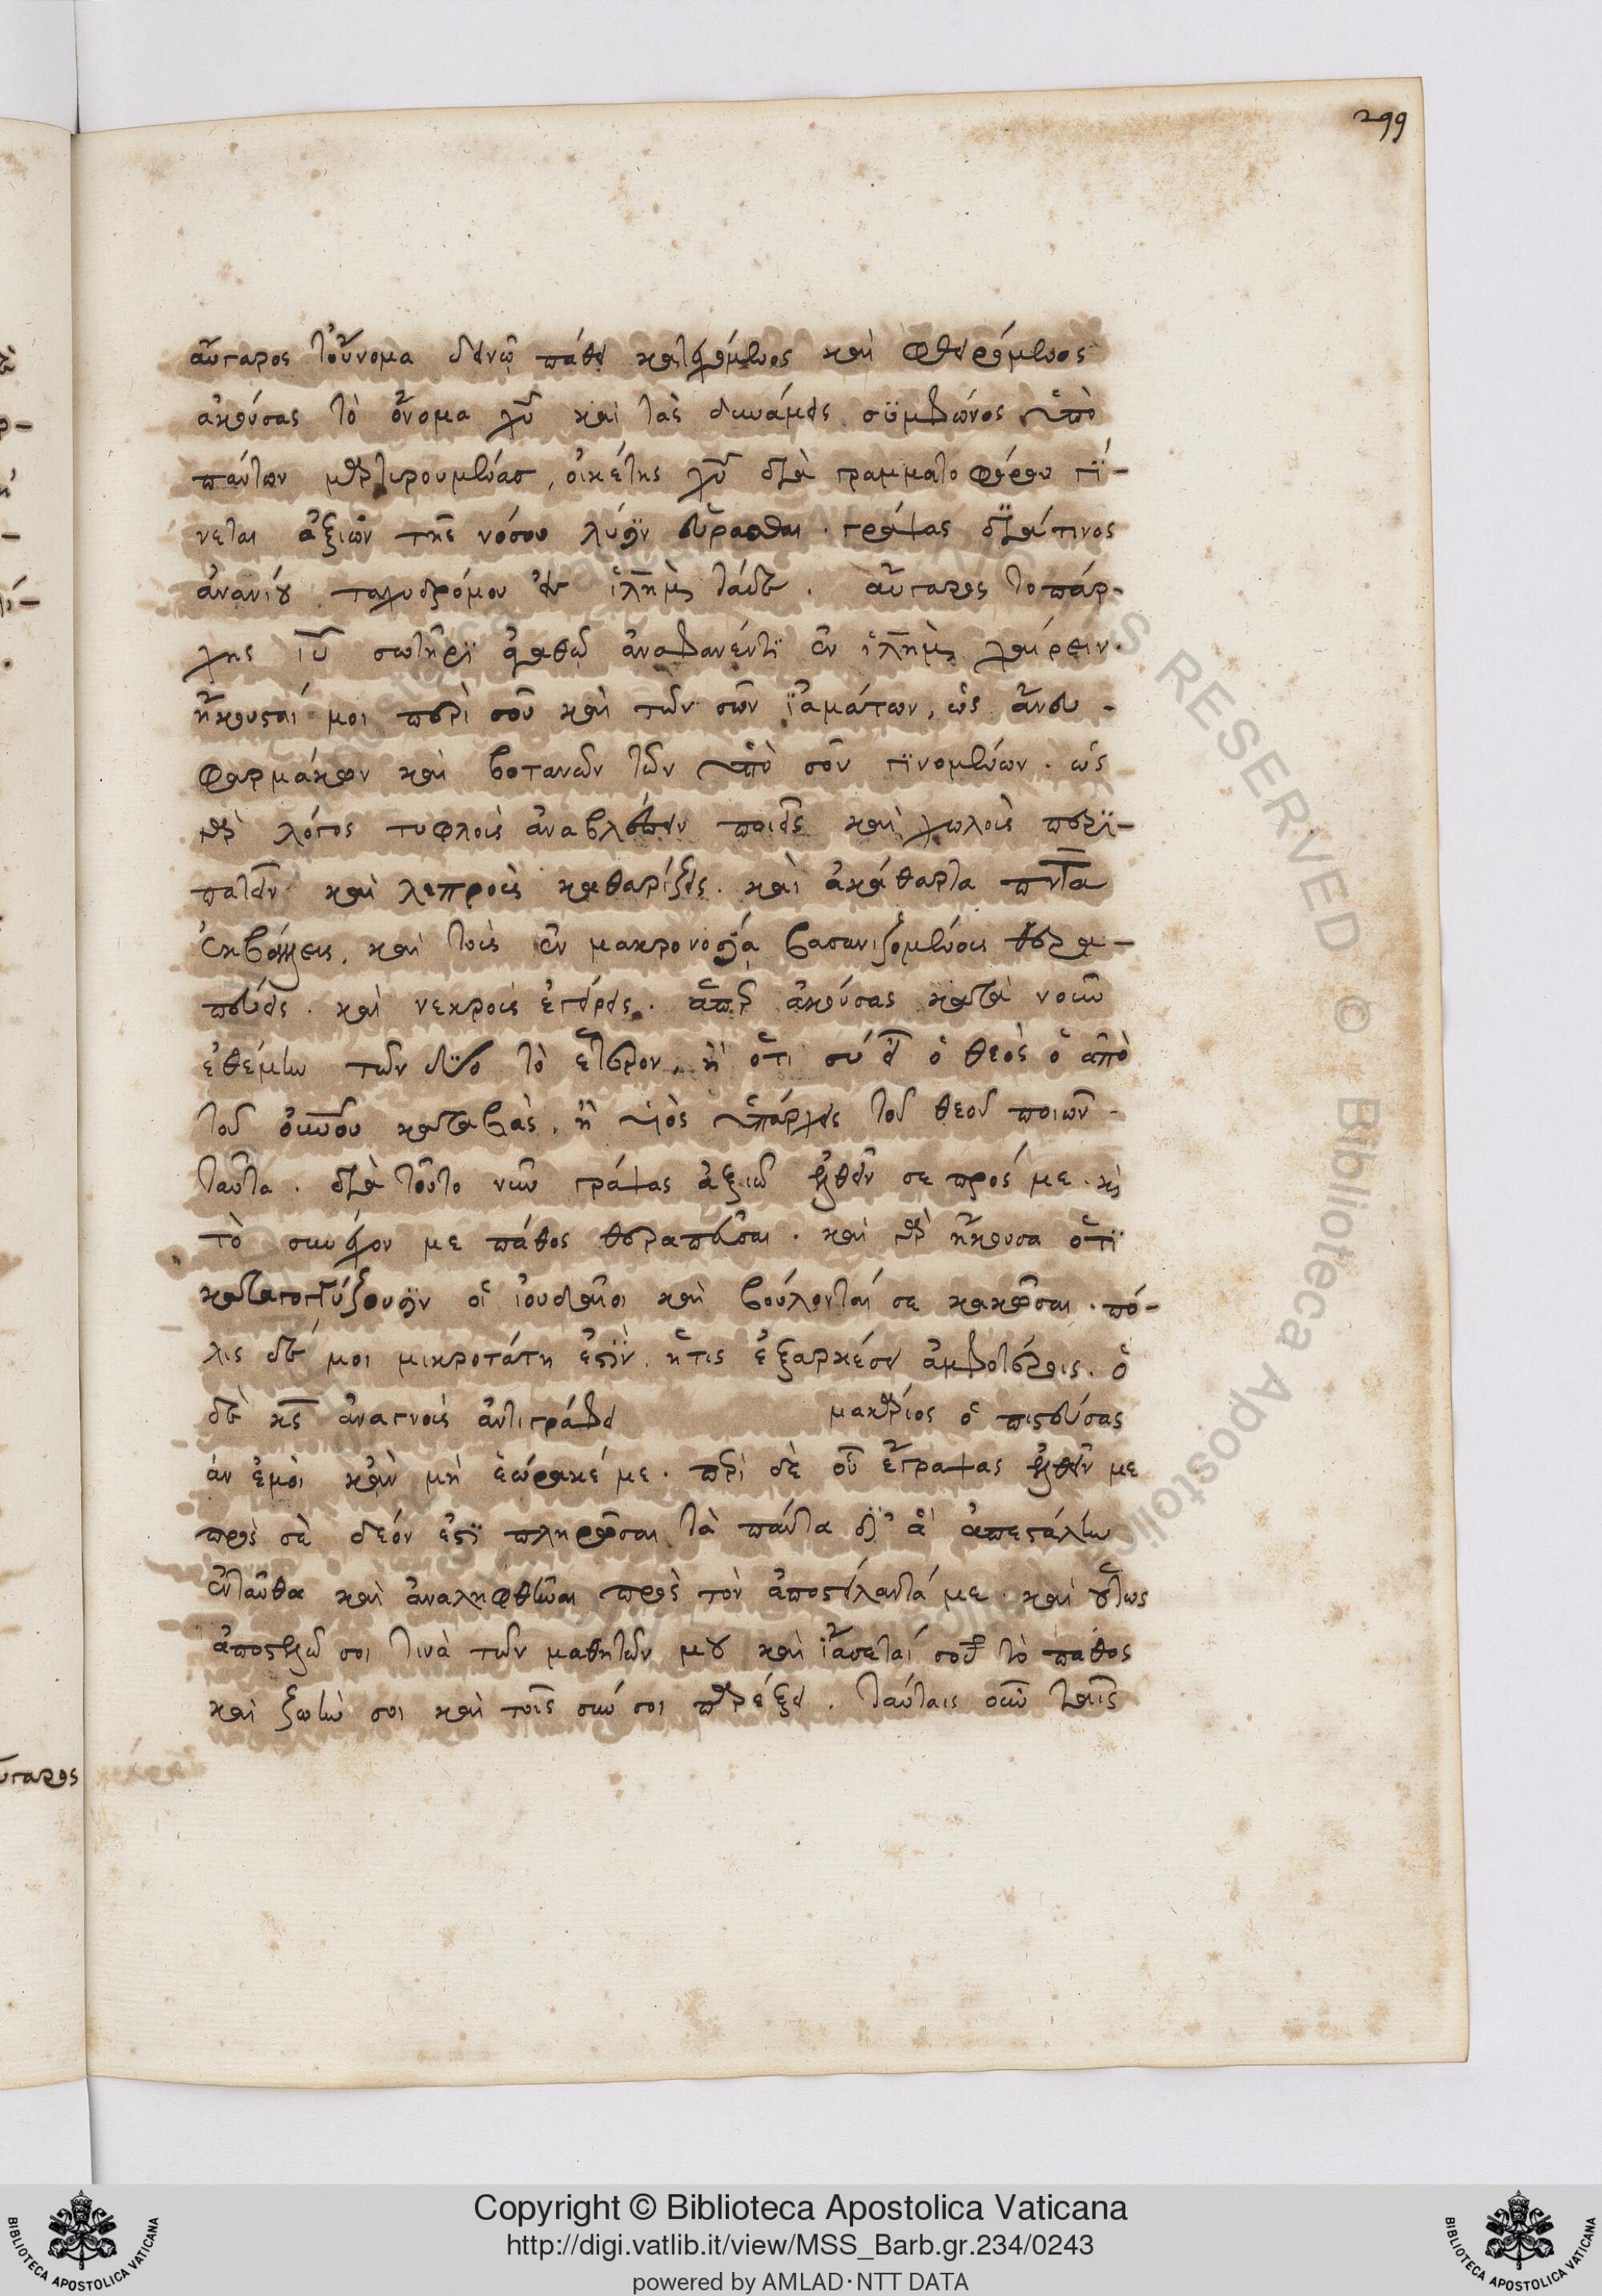 299
αὔγαρος τοὔνομα δεινῶ πάθει κατεχόμενος καὶ φθειρόμενος
ἀκούσας τὸ ὄνομα χυ καὶ τὰς δυνάμεις συμφώνος ὑπὸ
πάντων μαρτυρουμένας, οἰκέτης χυ διὰ γραμματοφόρου γί-
νεται ἀξιῶν τῆς νόσου λύσιν εὕρασθαι. γράψας διά τινος
ἀνανίου ταχυδρόμου ἐν ἱλημ ταῦτα. αὔγαρος τοπάρ-
χης ιυ σωτῆρι ἀγαθῶ ἀναφανέντι ἐν ἱλημ χαίρειν.
ἤκουσταί μοι περὶ σοῦ καὶ τῶν σῶν ἰαμάτων, ὡς ἄνευ
φαρμάκων καὶ βοτανῶν τῶν ὑπὸ σοῦ γινομένων. ὡς
γὰρ λόγος τυφλοὶς ἀναβλέπειν ποιεῖς καὶ χωλοὶς περι-
πατεῖν καὶ λεπροὶς καθαρίζεις. καὶ ἀκάθαρτα πντα
ἐκβάλλεις, καὶ τοὶς ἐν μακρονοσία βασανιζομένοις θερα-
πεύεις. καὶ νεκροὶς ἐγείρεις. ἅπερ ἀκούσας κατὰ νοῦν
ἐθέμην τῶν δύο τὸ ἕτερον, ἢ ὅτι σὺ εἶ ὁ θεὸς ὁ ἀπὸ
τοῦ οὐνου καταβὰς, ἢ υἱὸς ὑπάρχεις τοῦ θεοῦ ποιῶν
ταῦτα. διὰ τοῦτο νῦν γράψας ἀξιῶ ἐλθεῖν σε πρός με. καὶ
τὸ συνέχον με πάθος θεραπεῦσαι. καὶ γὰρ ἤκουσα ὅτι
καταγογγύζουσιν οἱ ἰουδαῖοι καὶ βούλονταί σε κακῶσαι. πό-
λις δέ μοι μικροτάτη ἐστὶν, ἥτις ἐξαρκέσει ἀμφοτέροις. ὁ
δὲ κς ἀναγνοὶς ἀντιγράφει μακάριος ὁ πιστεύσας
ἐν ἐμοὶ κἂν μὴ ἑώρακέ με. περὶ δὲ οὗ ἔγραψας ἐλθεῖν με
πρὸς σὲ δεόν ἐστι πληρῶσαι τὰ πάντα δι' ἃ ἀπεστάλην
ἐνταῦθα καὶ ἀναληφθῆναι πρὸς τὸν ἀποστείλαντά με. καὶ οὕτως
ἀποστελῶ σοι τινὰ τῶν μαθητῶν μου καὶ ἰάσεταί σου τὸ πάθος
καὶ ζωὴν σοι καὶ τοῖς σύν σοι παρέξει. ταύταις οὖν ταῖς
Copyright © Biblioteca Apostolica Vaticana
http://digi.vatlib.it/view/MSS_Barb.gr.234/0243
powered by AMLAD·NTT DATA